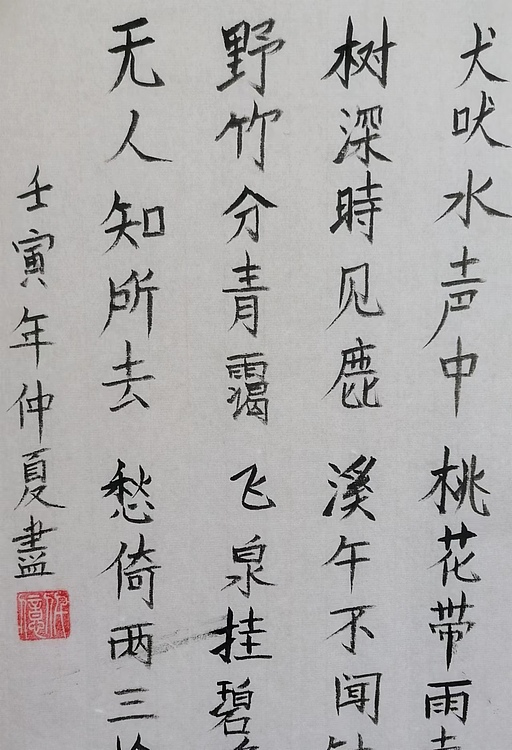 犬吠水声中 桃花带雨
树深時见鹿 溪午不闻
野竹分青霭 飞泉挂碧
无人知所去 愁倚两三
壬寅年仲夏